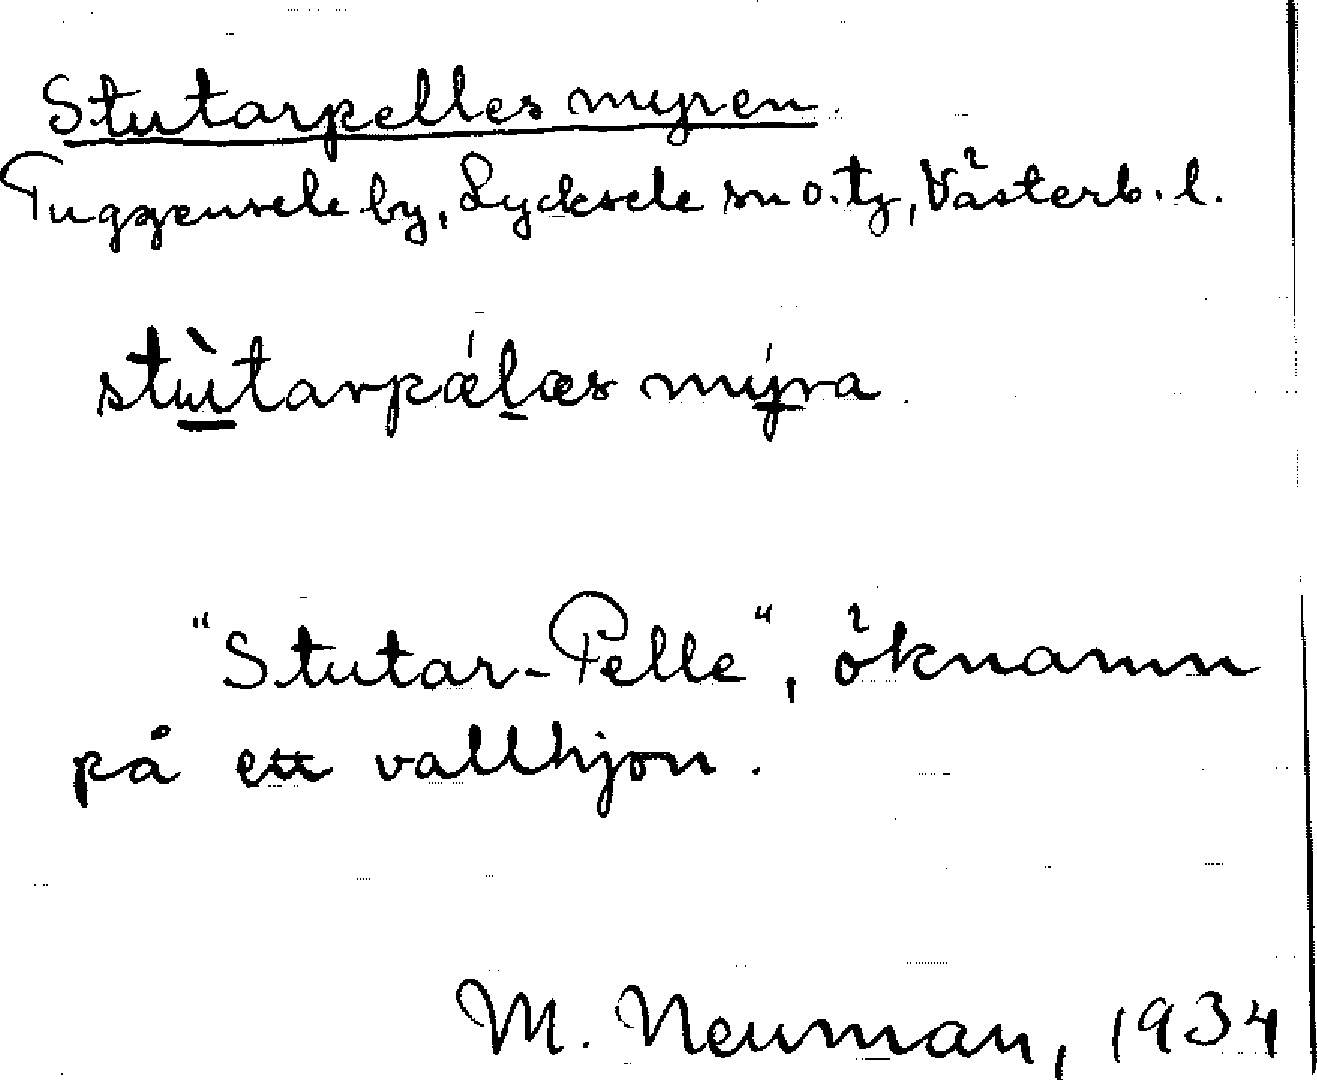 Stutarpelles myren.
Tuggensele by, Lycksele sn o. tg, Västerb. l.
stùtarpǽlæs mýra.
"Stutar-Pelle", öknamn
på ett vallhjon.
M. Neuman, 1934